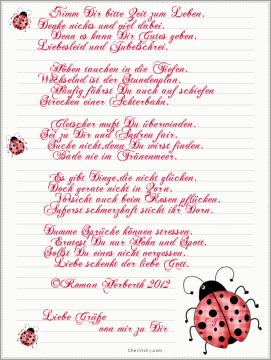 Nimm Dir bitte Zeit zum Leben.
Denke nichts und viel dabei.
Denn es kann Dir Gutes geben.
Liebesleid und Jubelschrei.
Höhen tauchen in die Tiefen.
Wechselnd ist der Stundenplan.
Häufig fährst Du auch auf schiefen
Strecken einer Achterbahn.
Gletscher mußt Du überwinden.
Sei zu Dir und Andren fair.
Suche nicht,denn Du wirst finden.
Bade nie im Tränenmeer.
Es gibt Dinge,die nicht glücken.
Doch gerate nicht in Zorn.
Vorsicht auch beim Rosen pflücken.
Äußerst schmerzhaft sticht ihr Dorn.
Dumme Sprüche können stressen.
Erntest Du nur Hohn und Spott.
Sollst Du eines nicht vergessen.
Liebe schenkt der liebe Gott.
©Roman Herberth 2012
Liebe Grüße
von mir zu Dir